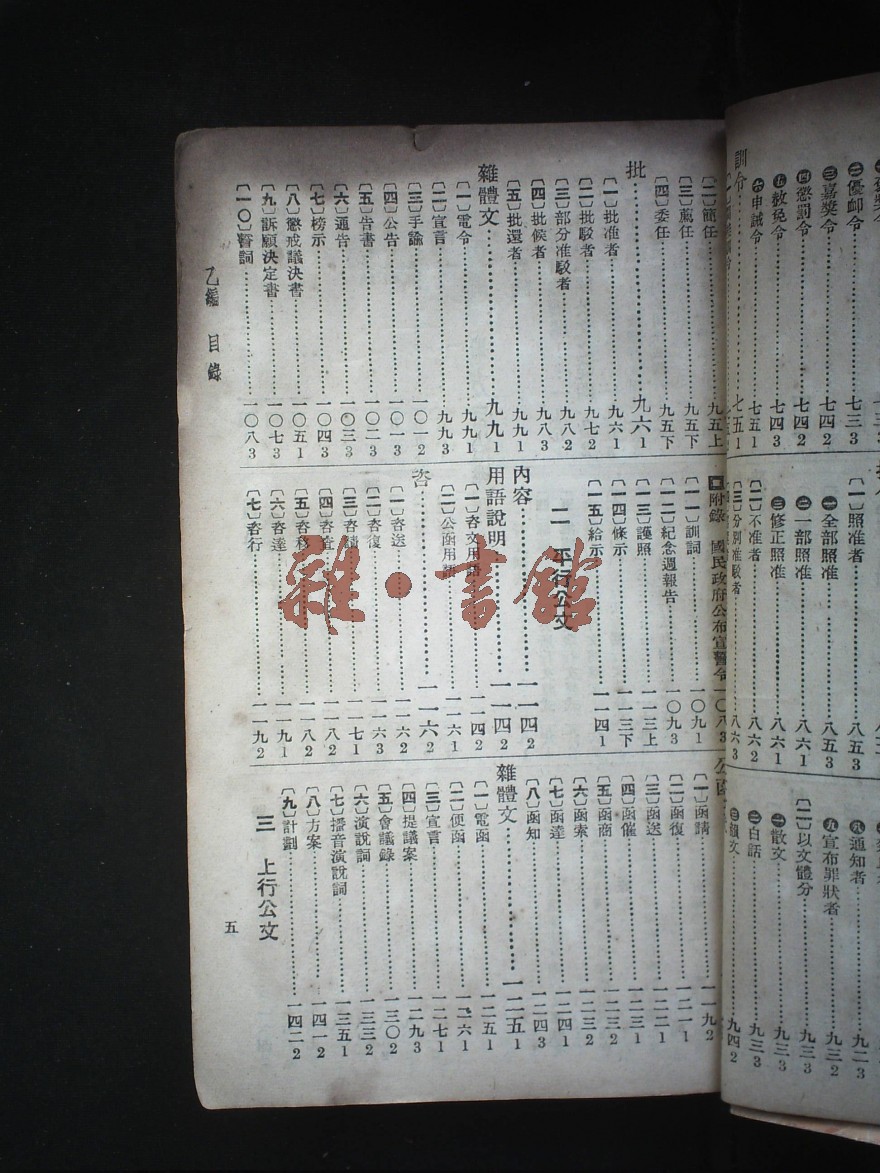 ㊁優卹令……七三3
㊂嘉獎令……七四2
㊃懲罰令……七四2
㊄赦免令……七四3
㊅申誡令……七五1
訓令……七五1
〔一〕照准者……八五3
㊀全部照准……八五3
㊁一部照准……八六1
㊂修正照准……八六1
〔二〕不准者……八六2
〔三〕分別准駁者……八六3
㊇通知者……九二3
㊈宣布罪狀者……九三2
〔二〕以文體分……九三3
㊀散文……九三3
㊁白話……九三3
㊂韻文……九四2
〔二〕簡任……九五上
〔三〕薦任……九五下
〔四〕委任……九五下
批……九六1
〔一〕批准者……九六1
〔二〕批駁者……九七2
〔三〕部分准駁者……九八2
〔四〕批候者……九八3
〔五〕批還者……九九1
雜體文……九九1
〔一〕電令……九九1
〔二〕宣言……九九3
〔三〕手諭……一〇一2
〔四〕公告……一〇一3
〔五〕告書……一〇二3
〔六〕通告……一〇三3
〔七〕榜示……一〇四3
〔八〕懲戒議決書……一〇五1
〔九〕訴願決定書……一〇七3
〔一〇〕誓詞……一〇八3
附錄 國民政府公布宣誓令一〇八3
〔一一〕訓詞……一〇九1
〔一二〕紀念週報告……一〇九3
〔一三〕護照……一一三上
〔一四〕條示……一一三下
〔一五〕給示……一一四1
二 平行公文
內容……一一四2
用語說明……一一四2
〔一〕咨文用語……一一四2
〔二〕公函用語……一一六1
咨……一一六2
〔一〕咨送……一一六2
〔二〕咨復……一一六3
〔三〕咨請……一一七1
〔四〕咨查……一一八2
〔五〕咨移……一一八2
〔六〕咨達……一一九1
〔七〕咨行……一一九2
公函
〔一〕函請……一一九2
〔二〕函復……一二一1
〔三〕函送……一二二1
〔四〕函催……一二三1
〔五〕函商……一二三2
〔六〕函索……一二三2
〔七〕函達……一二四1
〔八〕函知……一二四3
雜體文……一二五1
〔一〕電函……一二五1
〔二〕便函……一二六1
〔三〕宣言……一二七1
〔四〕提議案……一二九3
〔五〕會議錄……一三〇2
〔六〕演說詞……一三三2
〔七〕播音演說詞……一三五1
〔八〕方案……一四一2
〔九〕計劃……一四二2
三 上行公文
乙編 目錄
五
雜·書館